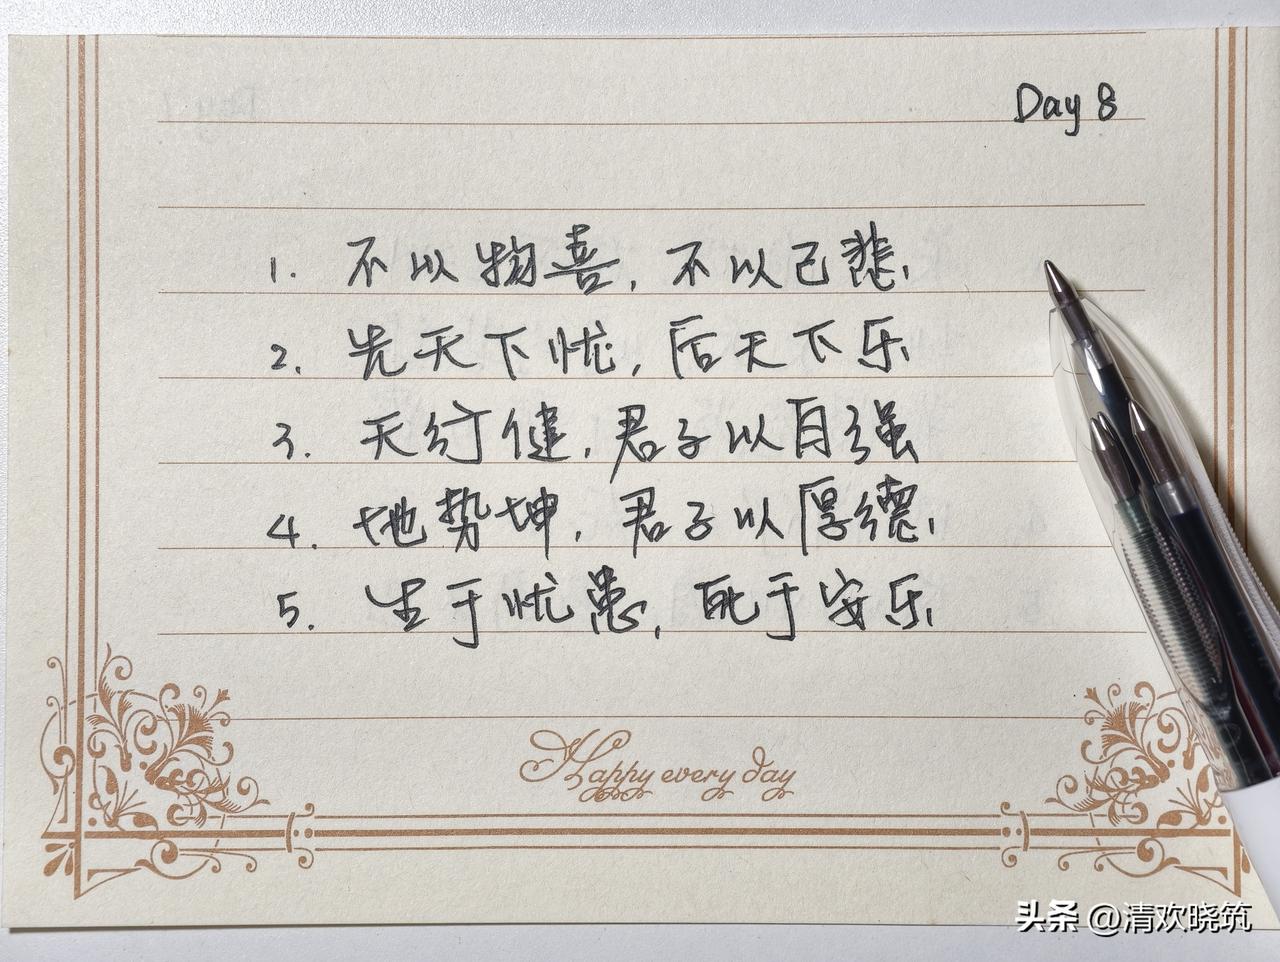 Day 8
1. 不以物喜，不以己悲，
2. 先天下忧，后天下乐
3. 天行健，君子以自强
4. 地势坤，君子以厚德，
5. 生于忧患，死于安乐
Happy every day
头条 @清欢晓筑